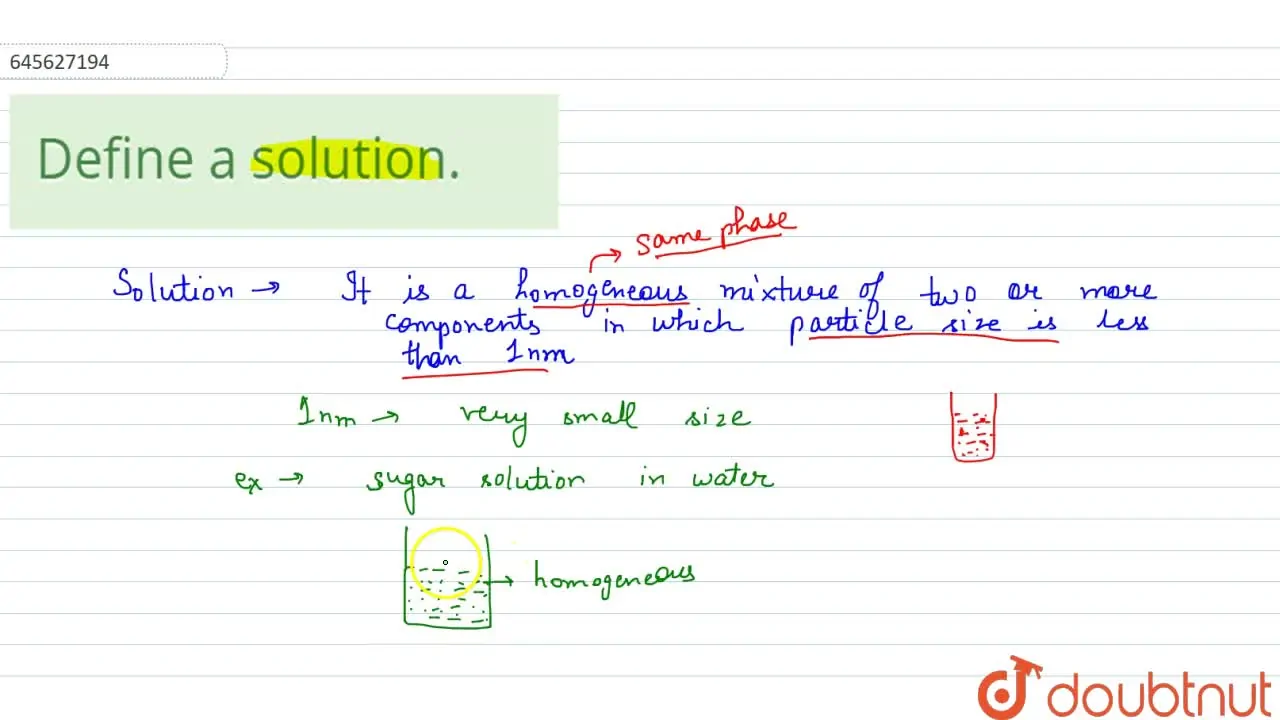 645627194
Define a solution.
same phase
Solution → It is a homogeneous mixture of two or more
components in which particle size is less
than 1nm
1nm → very small size
ex → sugar solution in water
→ homogeneous
doubtnut